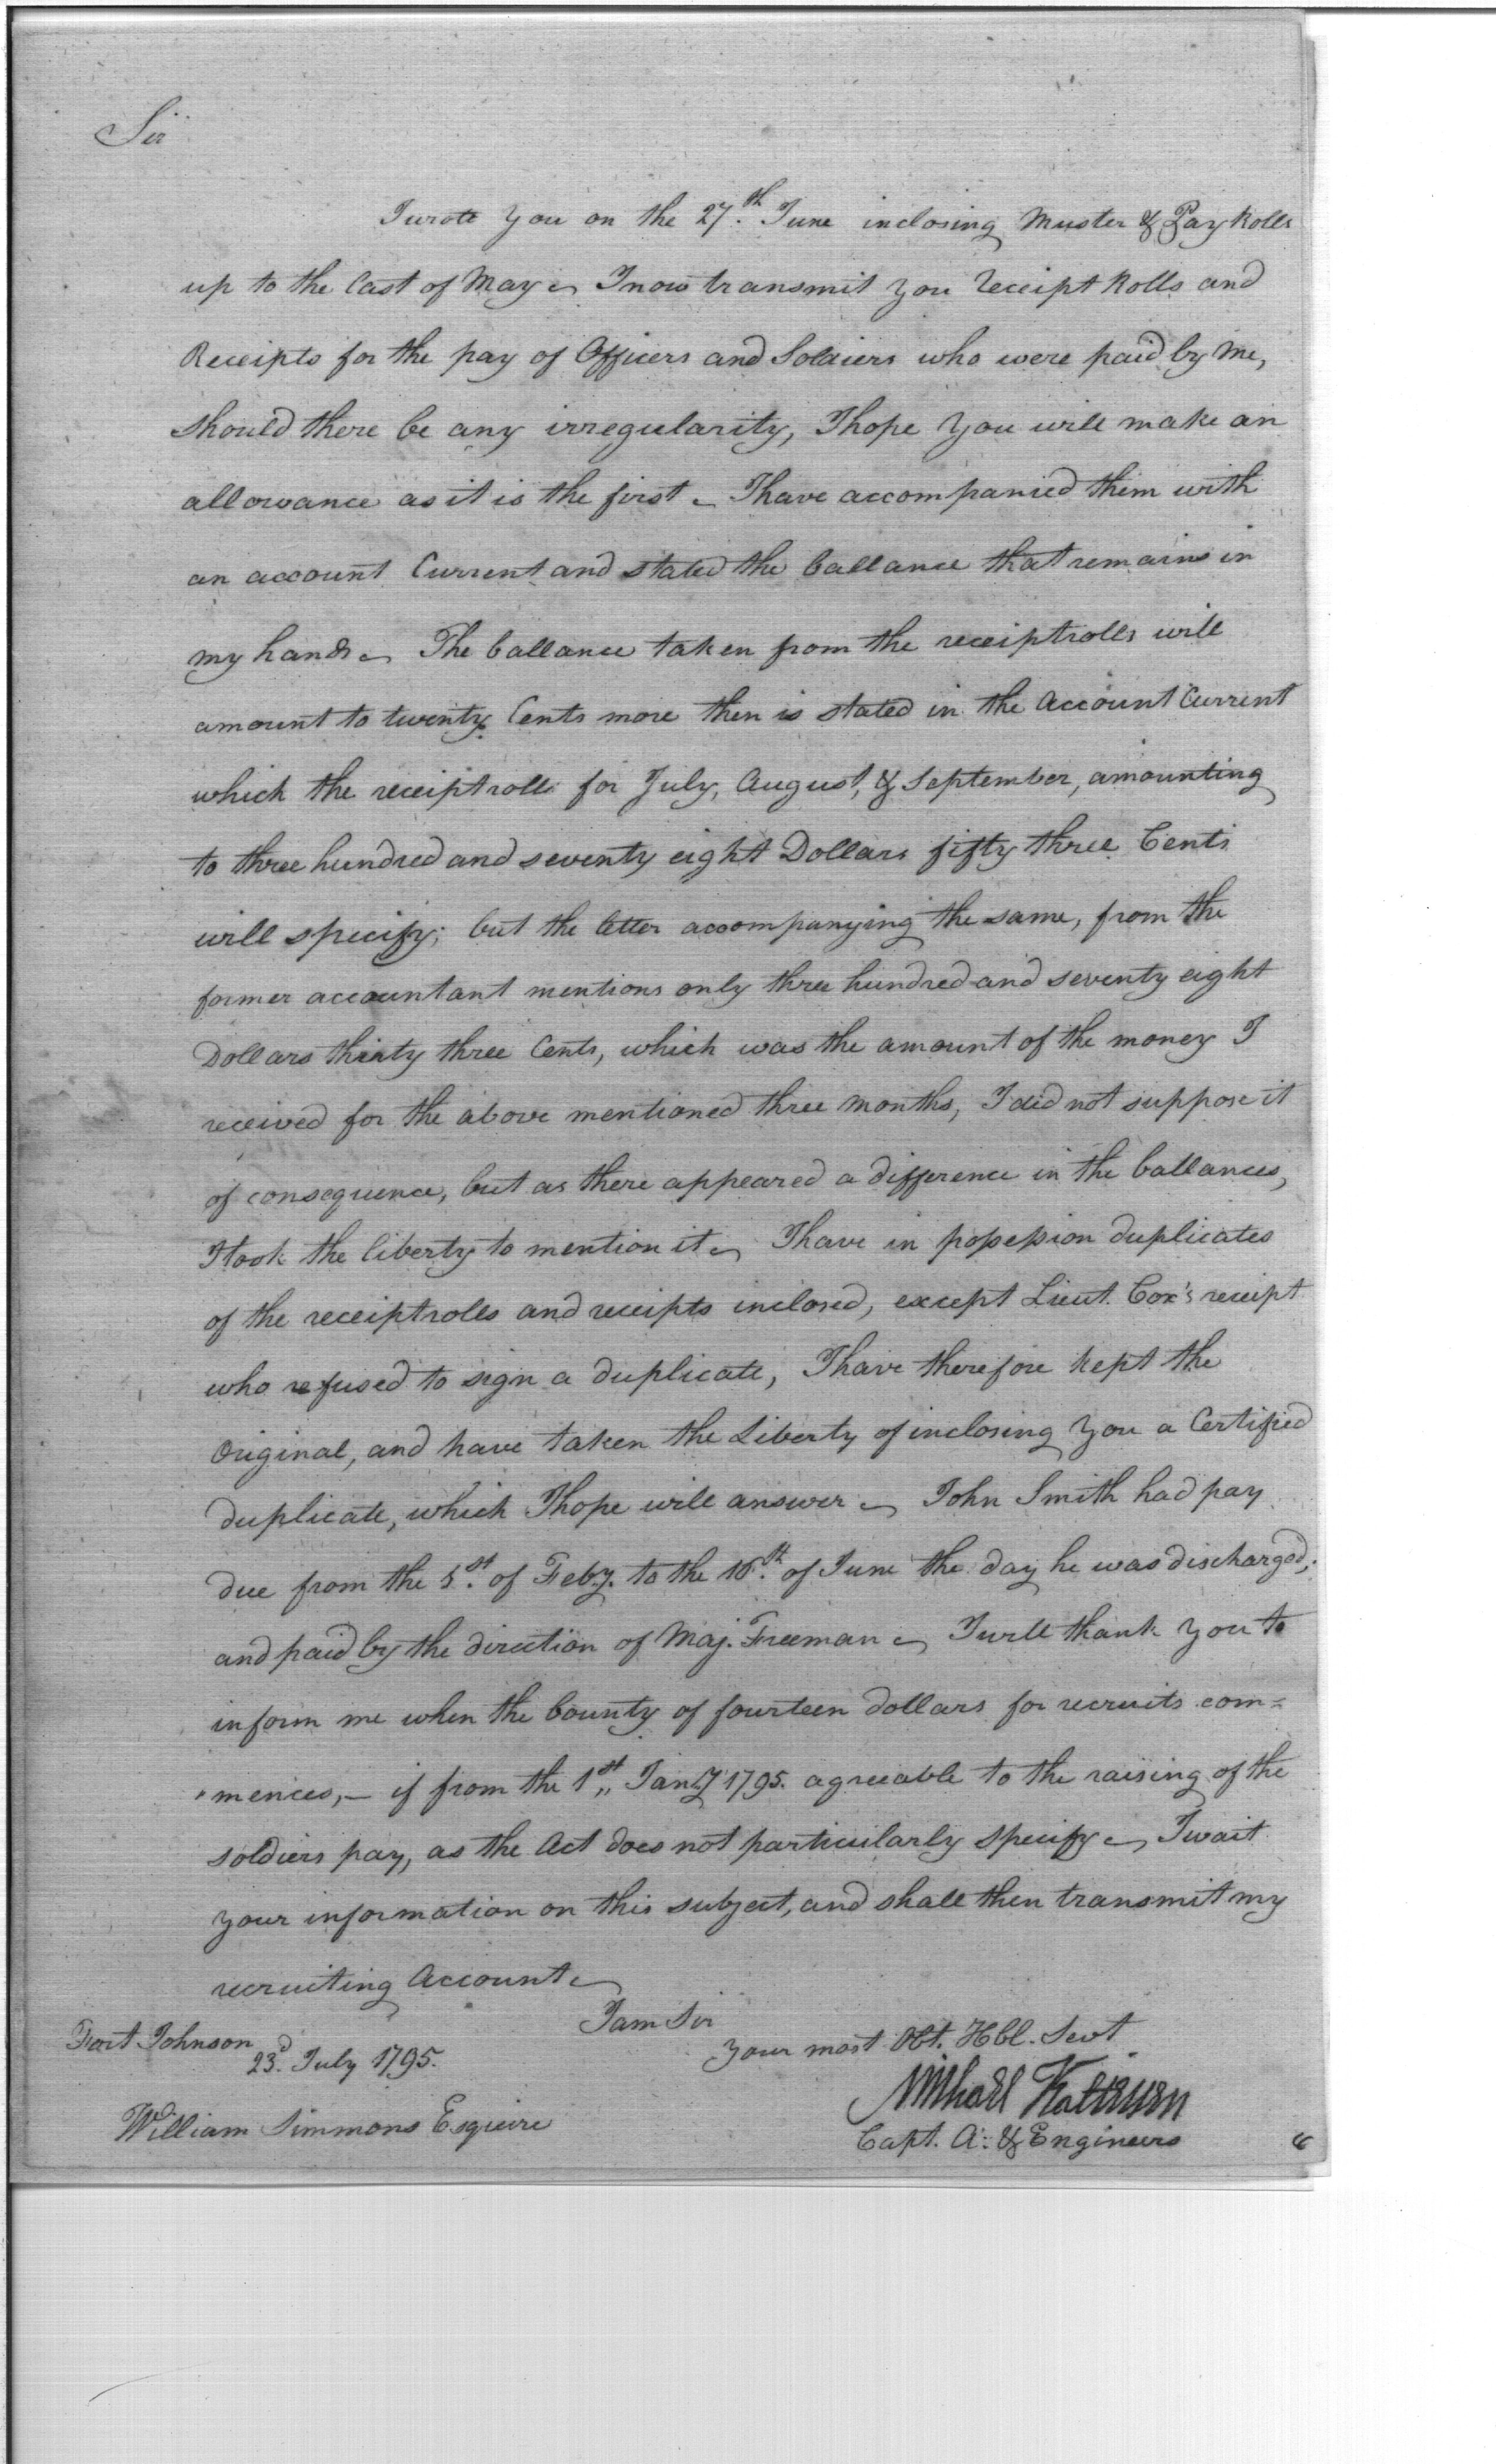 Sir
I wrote you on the 27.th June inclosing Muster & Pay Rolls
up to the last of May – I now transmit you receipt Rolls and
Receipts for the pay of Officers and Soldiers who were paid by me,
should there be any irregularity, I hope you will make an
allowance as it is the first – I have accompanied them with
an account Current and stated the ballance that remains in
my hands – The ballance taken from the receiptrolls will
amount to twenty Cents more then is stated in the Account Current
which the receiptrolls for July, August, & September, amounting
to three hundred and seventy eight Dollars fifty three Cents
will specify; but the letter accompanying the same, from the
former accountant mentions only three hundred and seventy eight
Dollars thirty three Cents, which was the amount of the money I
received for the above mentioned three months, I did not suppose it
of consequence, but as there appeared a difference in the ballances,
I took the liberty to mention it – I have in possession duplicates
of the receiptrolls and receipts inclosed, except Lieut. Cox's receipt
who refused to sign a duplicate, I have therefore kept the
Original, and have taken the Liberty of inclosing you a Certified
duplicate, which I hope will answer – John Smith had pay
due from the 1.st of Feby. to the 16.th of June the day he was discharged;
and paid by the direction of Maj. Freeman – I will thank you to
inform me when the bounty of fourteen dollars for recruits com=
"mences, – if from the 1st,, Jany 1795. agreeable to the raising of the
soldiers pay, as the Act does not particularly specify – I wait
your information on this subject, and shall then transmit my
recruiting Account –
I am Sir
Fort Johnson
your most Obt. Hbl. Sevt
23.d July 1795.
Michael Kalteisen
William Simmons Esquire
Capt. A: & Engineers